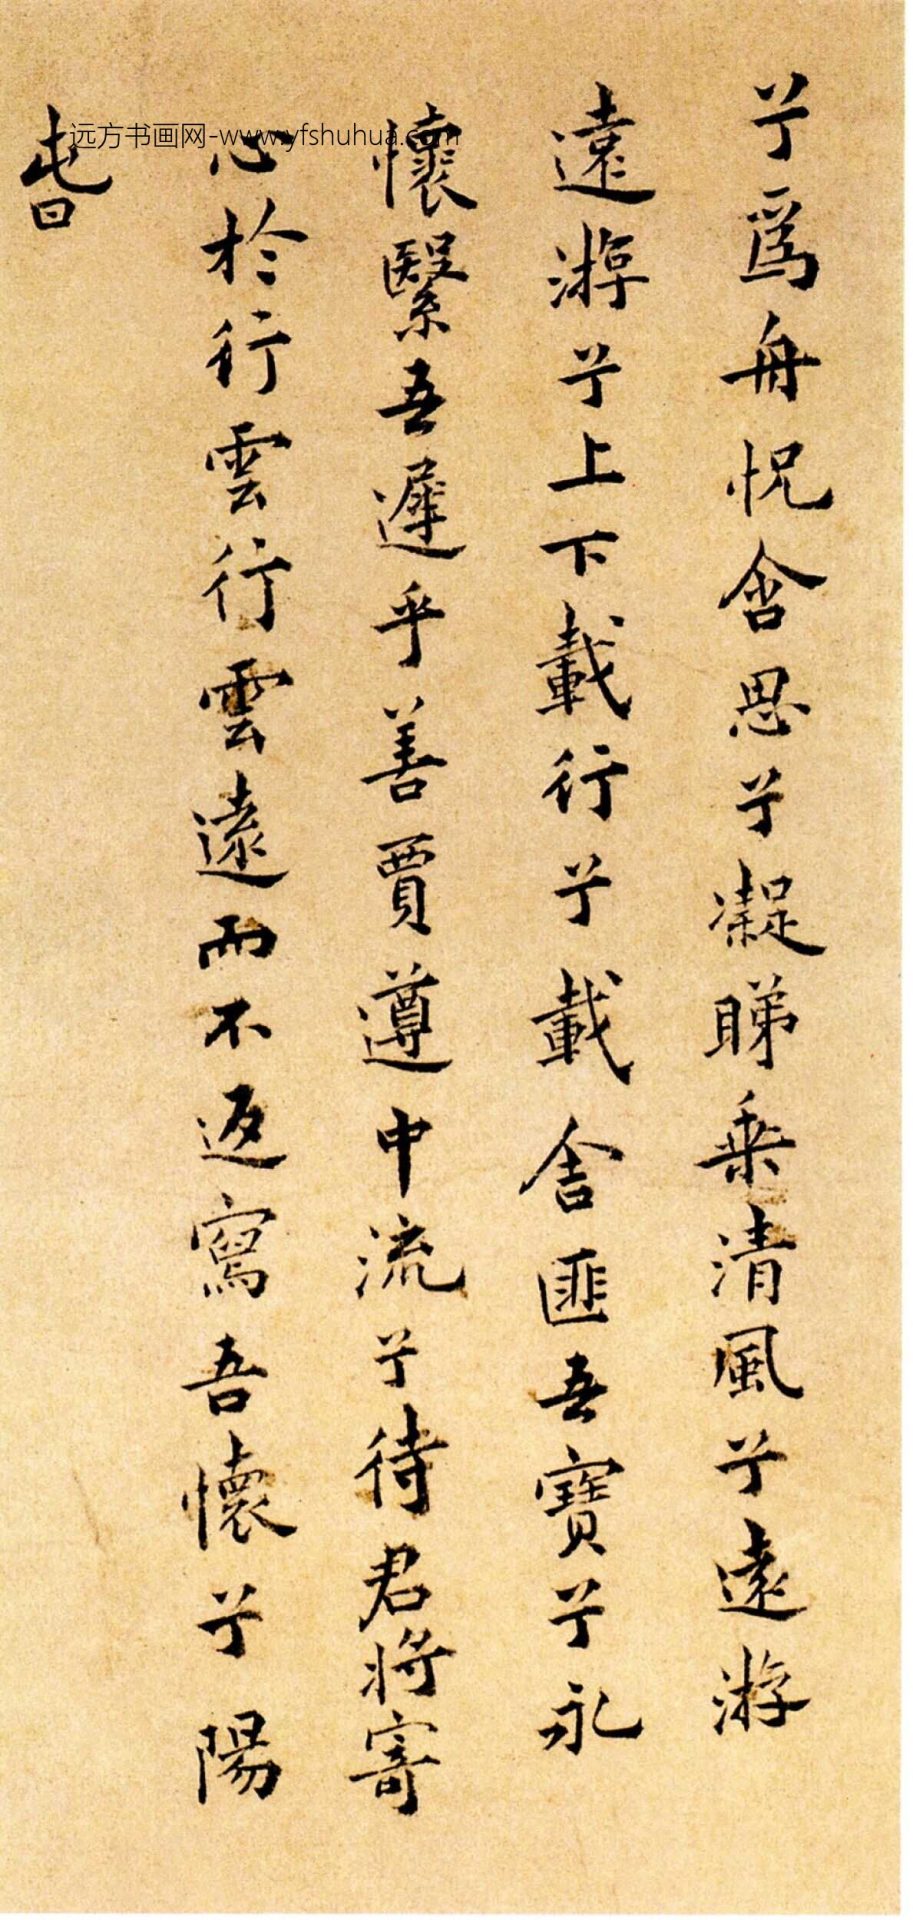 兮爲舟怳含思兮凝睇乗清風兮遠游
遠游兮上下載行兮載舍匪吾寶兮永
懷緊吾遲乎善賈遵中流兮待君將寄
心於行雲行雲遠而不返寫吾懷兮陽
春
远方书画网-www.yfshuhua.com